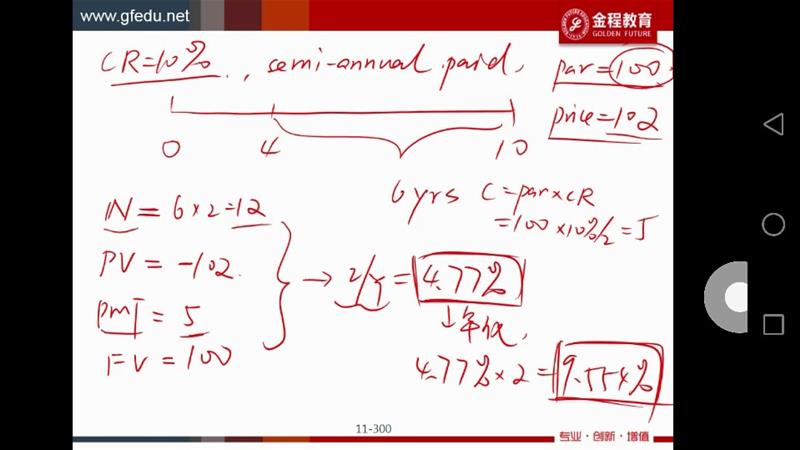 www.gfedu.net
金程教育
GOLDEN FUTURE
CR=10%, semi-annual paid,
par=100
price=102
0 4 10
6 yrs C=par×CR
=100×10%/2=5
N=6×2=12
PV=-102
PMT=5
FV=100
→ I/Y=4.77%
↓年化
4.77%×2=9.554%
11-300
专业·创新·增值